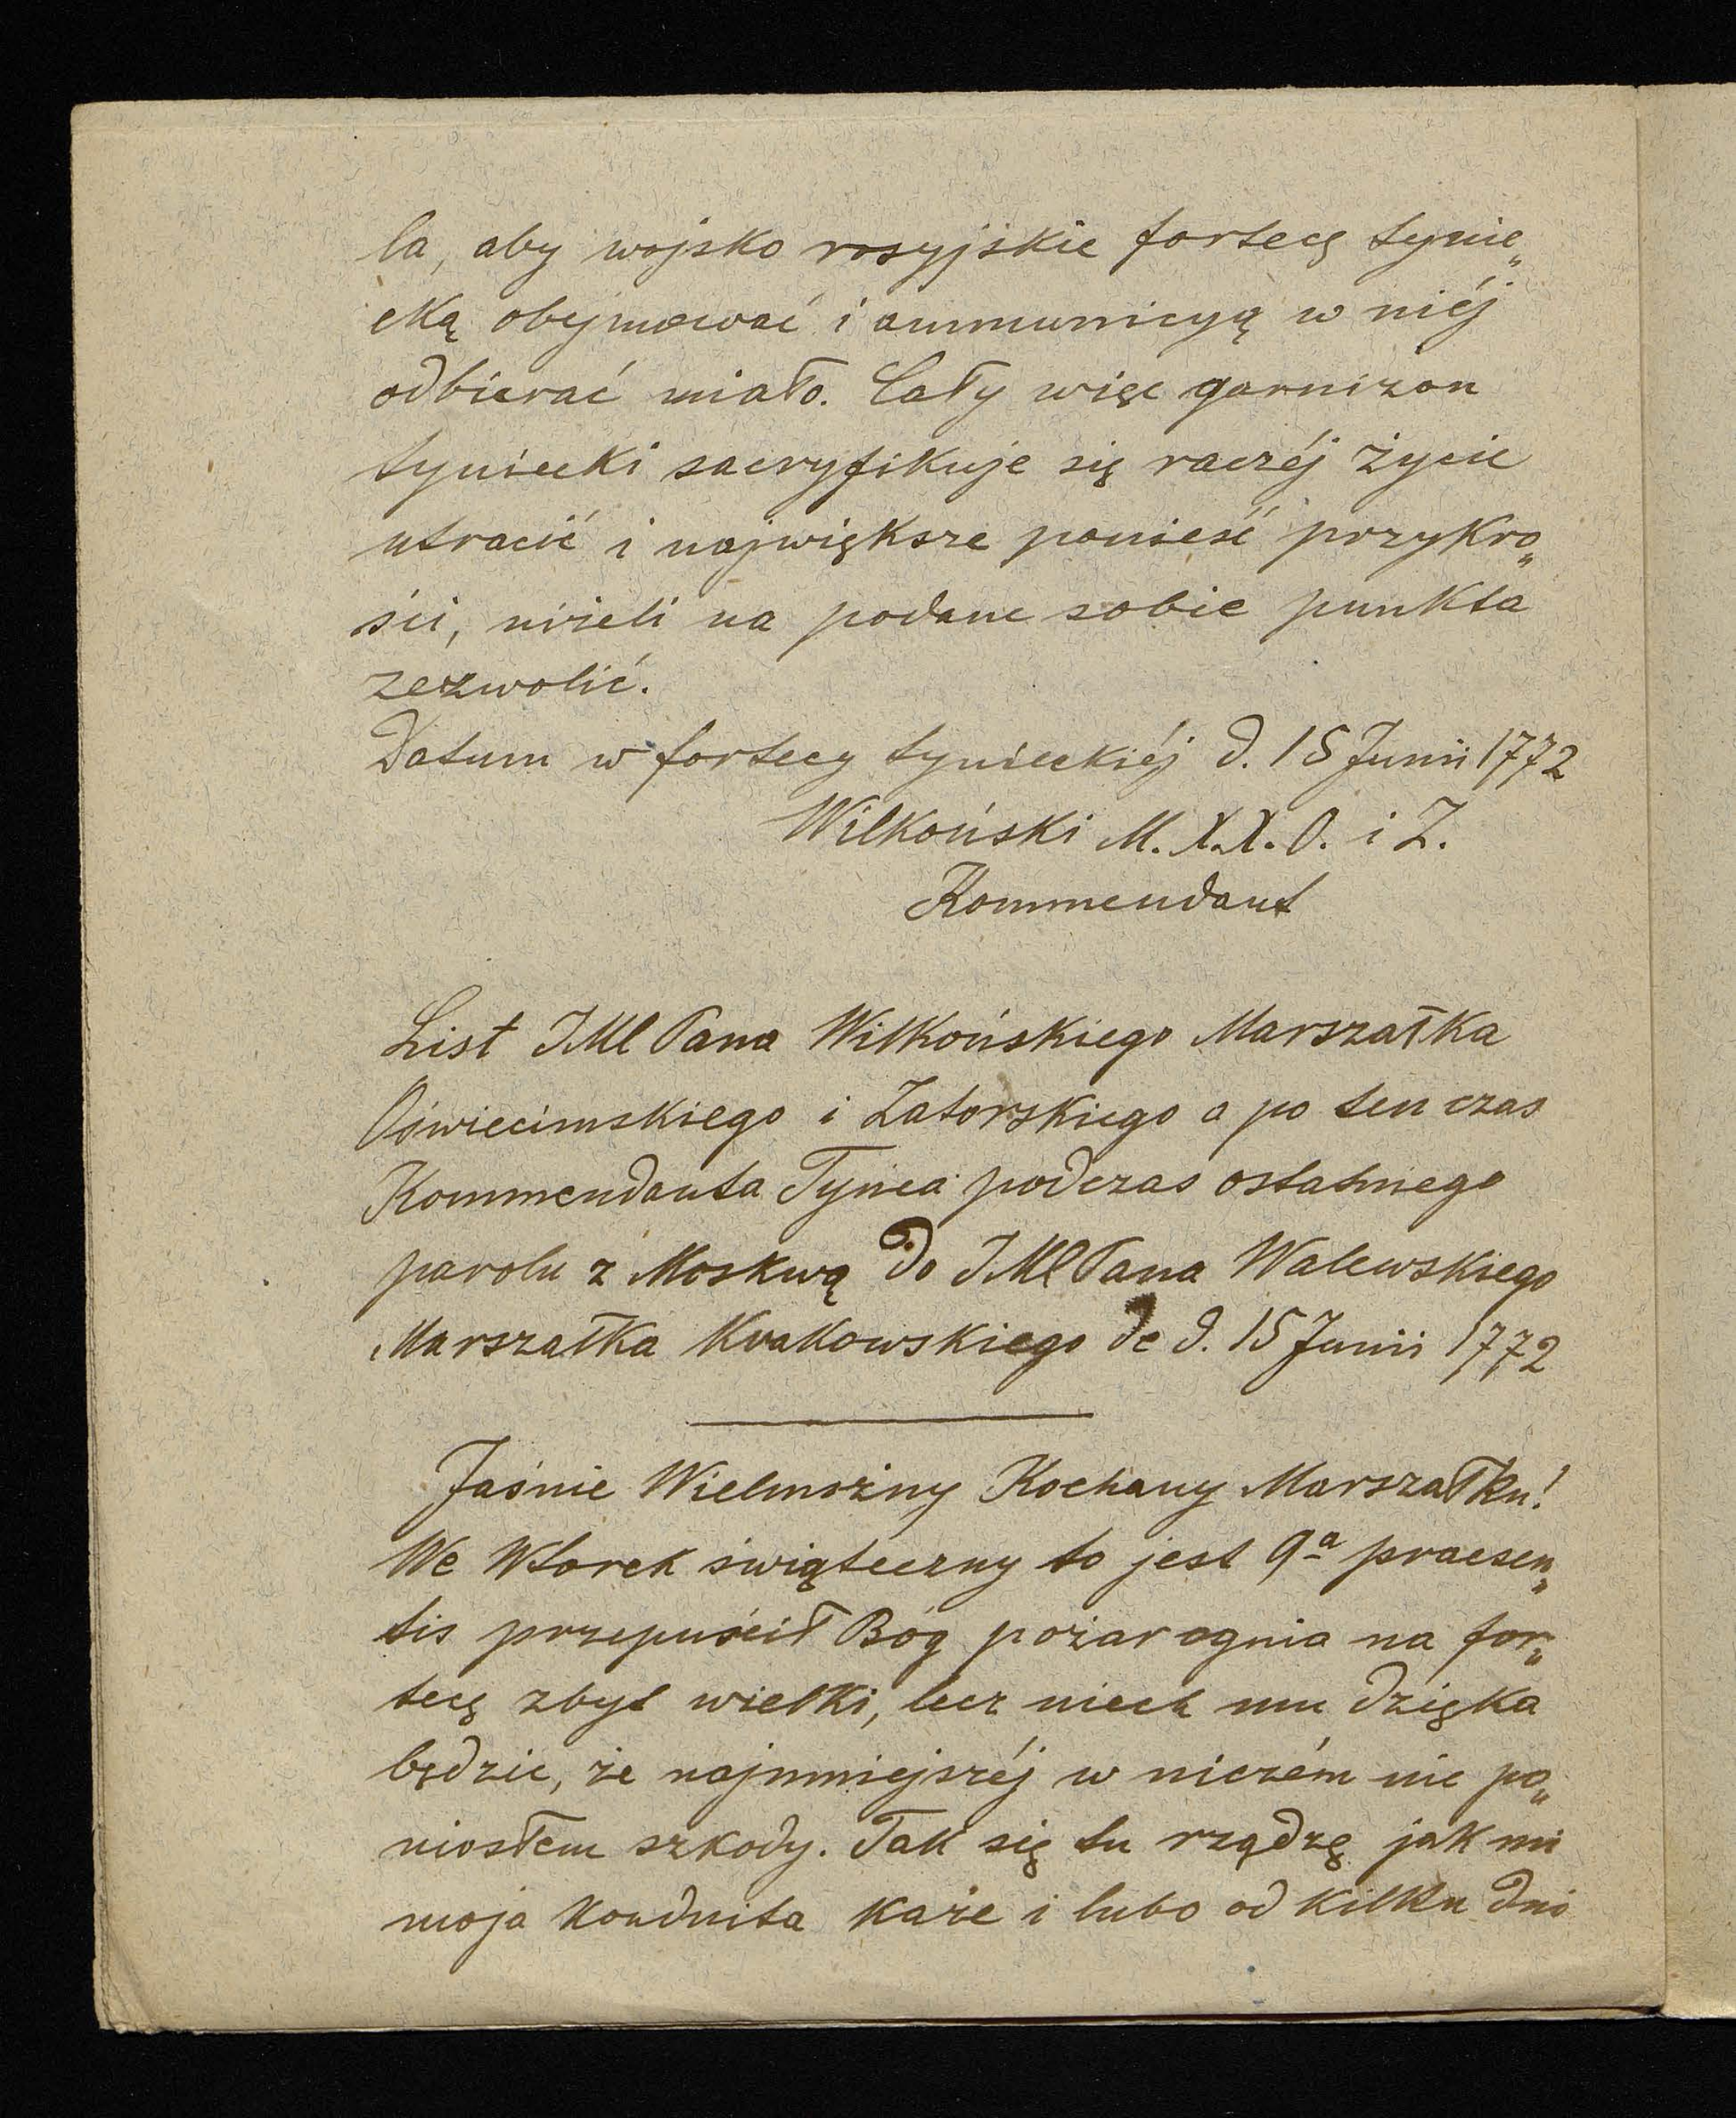 la, aby wojsko rosyjskie fortecę tynie„
cką obejmować i ammunicyą w niéj
odbierać miało. Cały więc garnizon
tyniecki sacryfikuje się raczéj życie
utracić i największe ponieść przykro„
ści, niżeli na podane sobie punkta
zezwolić.
Datum w fortecy tynieckiéj d. 15 Junii 1772
Wilkoński M. X.X. O. i Z.
Kommendant
List JMC Pana Wilkońskiego Marszałka
Oświecimskiego i Zatorskiego a po ten czas
Kommendanta Tyńca podczas ostatniego
parolu z Moskwą do JMC Pana Walewskiego
Marszałka Krakowskiego de d. 15 Junii 1772
Jaśnie Wielmożny Kochany Marszałku!
We Wtorek świąteczny to jest 9a praesen„
tis przepuścił Bóg pożar ognia na for„
tecę zbyt wielki, lecz niech mu dzięka
będzie, że najmniejszéj w niczém nie po„
niosłem szkody. Tak się tu rządzę jak mi
moja konduita każe i lubo od kilku dni